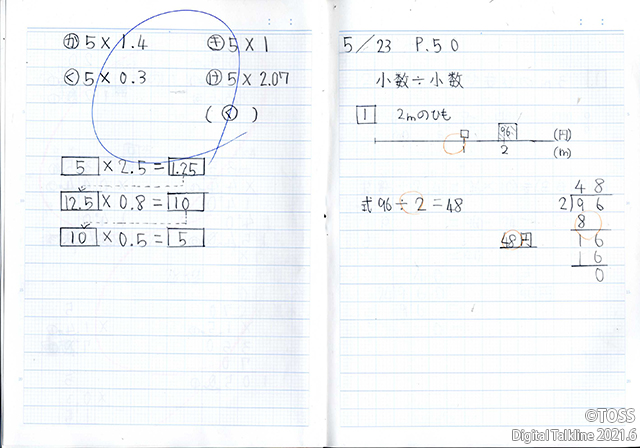 ㋕ 5 × 1.4
㋖ 5 × 1
㋗ 5 × 0.3
㋘ 5 × 2.07
( ㋗ )
5 × 2.5 = 1.25
12.5 × 0.8 = 10
10 × 0.5 = 5
5/23 P.50
小数÷小数
1 2mのひも
96 (円)
1 2 (m)
式 96 ÷ 2 = 48
48円
48
2)96
8
16
16
0
©TOSS
Digital Talkline 2021.6